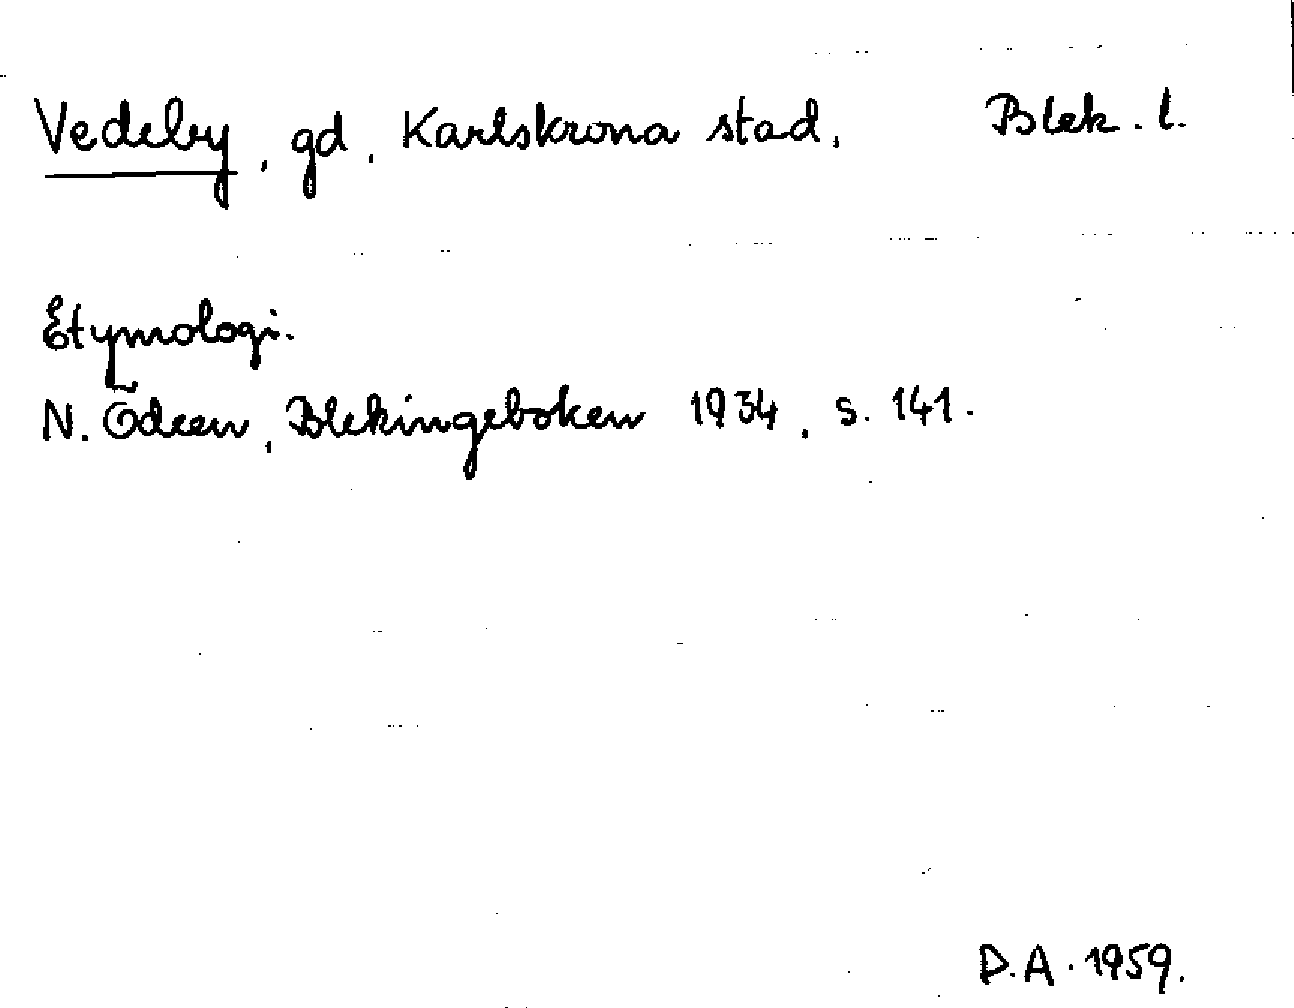 Vedeby, gd, Karlskrona stad, Blek. l.
Etymologi.
N. Ödeen, Blekingeboken 1934, s. 141.
D.A. 1959.